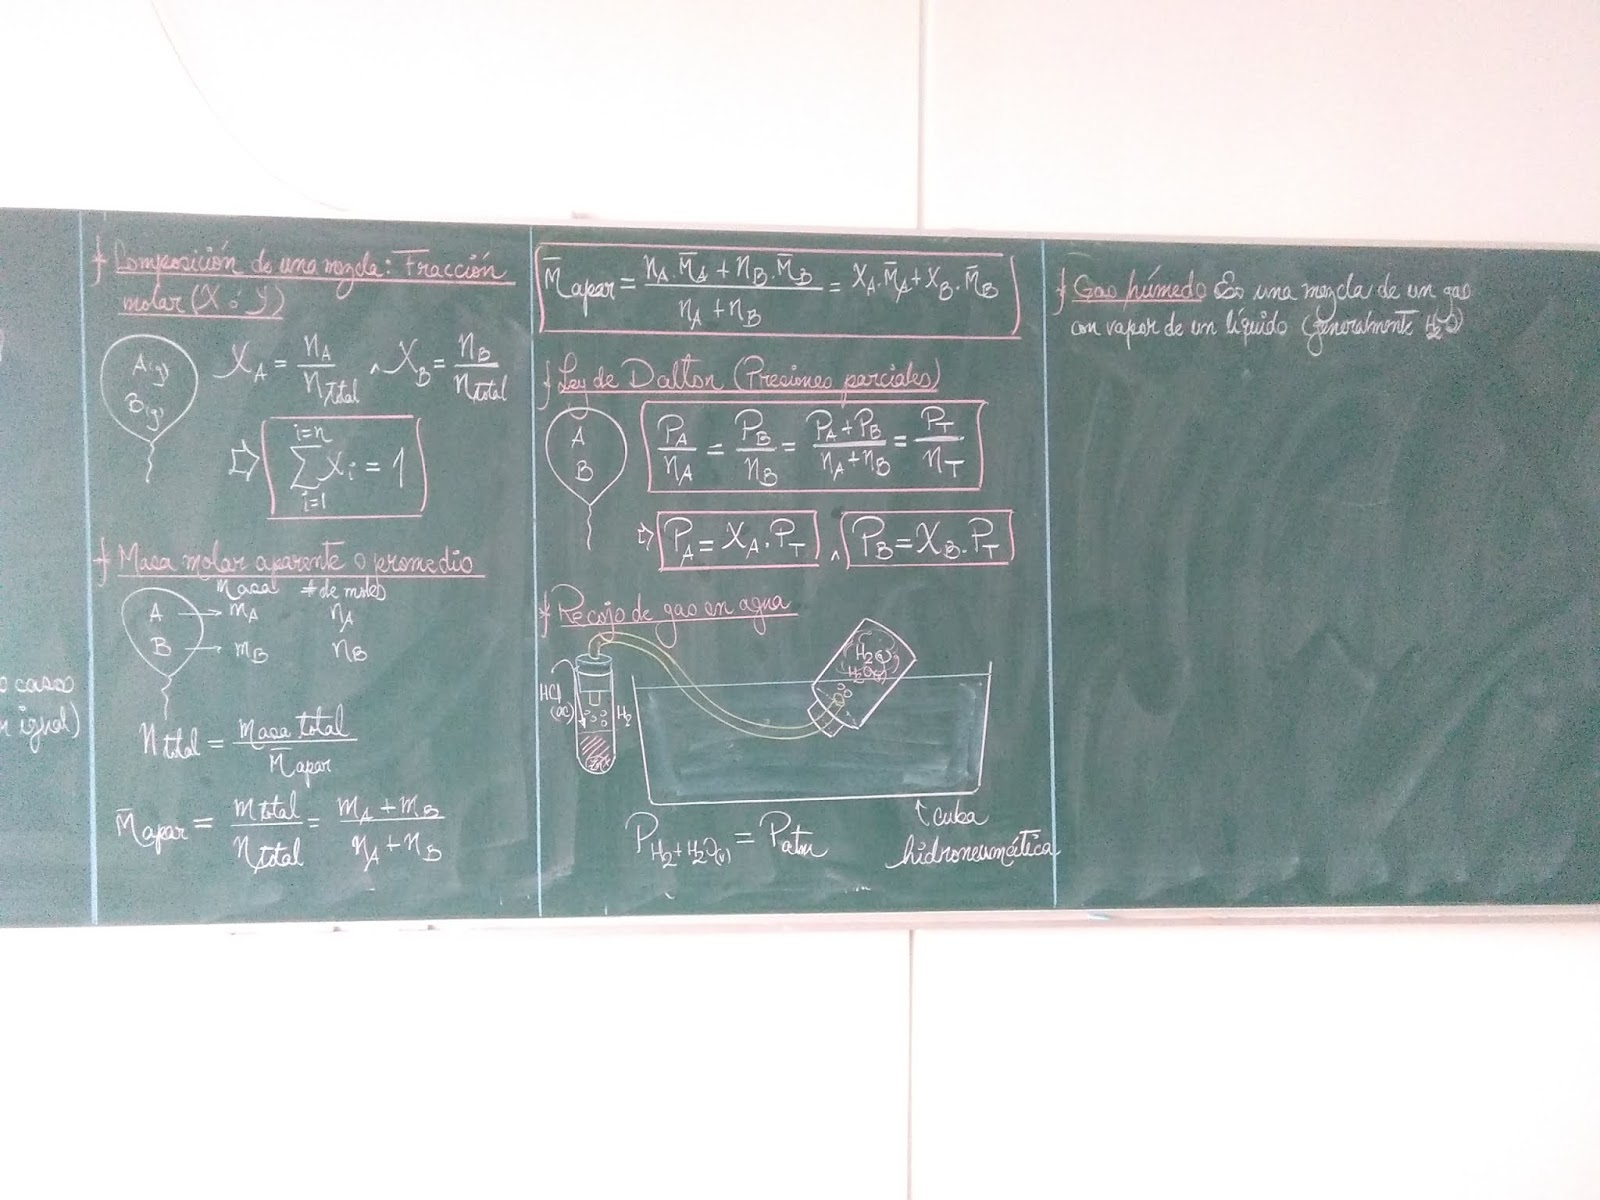 o caso
n igual)
* Composición de una mezcla: Fracción
molar (X ó Y)
A(g)
B(g)
X_A = n_A / n_total ∧ X_B = n_B / n_total
⇨ Σ_{i=1}^{i=n} X_i = 1
* Masa molar aparente o promedio
Masa # de moles
A → m_A n_A
B → m_B n_B
n_total = masa total / M̄_apar
M̄_apar = m_total / n_total = (m_A + m_B) / (n_A + n_B)
M̄_apar = (n_A . M̄_A + n_B . M̄_B) / (n_A + n_B) = X_A . M̄_A + X_B . M̄_B
* Ley de Dalton (Presiones parciales)
A
B
P_A / n_A = P_B / n_B = (P_A + P_B) / (n_A + n_B) = P_T / n_T
⇨ P_A = X_A . P_T ∧ P_B = X_B . P_T
* Recojo de gas en agua
H2(g)
H2O(v)
HCl
(ac)
H2
P_H2+H2O(v) = P_atm
↑ cuba
hidroneumática
* Gas húmedo Es una mezcla de un gas
con vapor de un líquido (generalmente H2O)